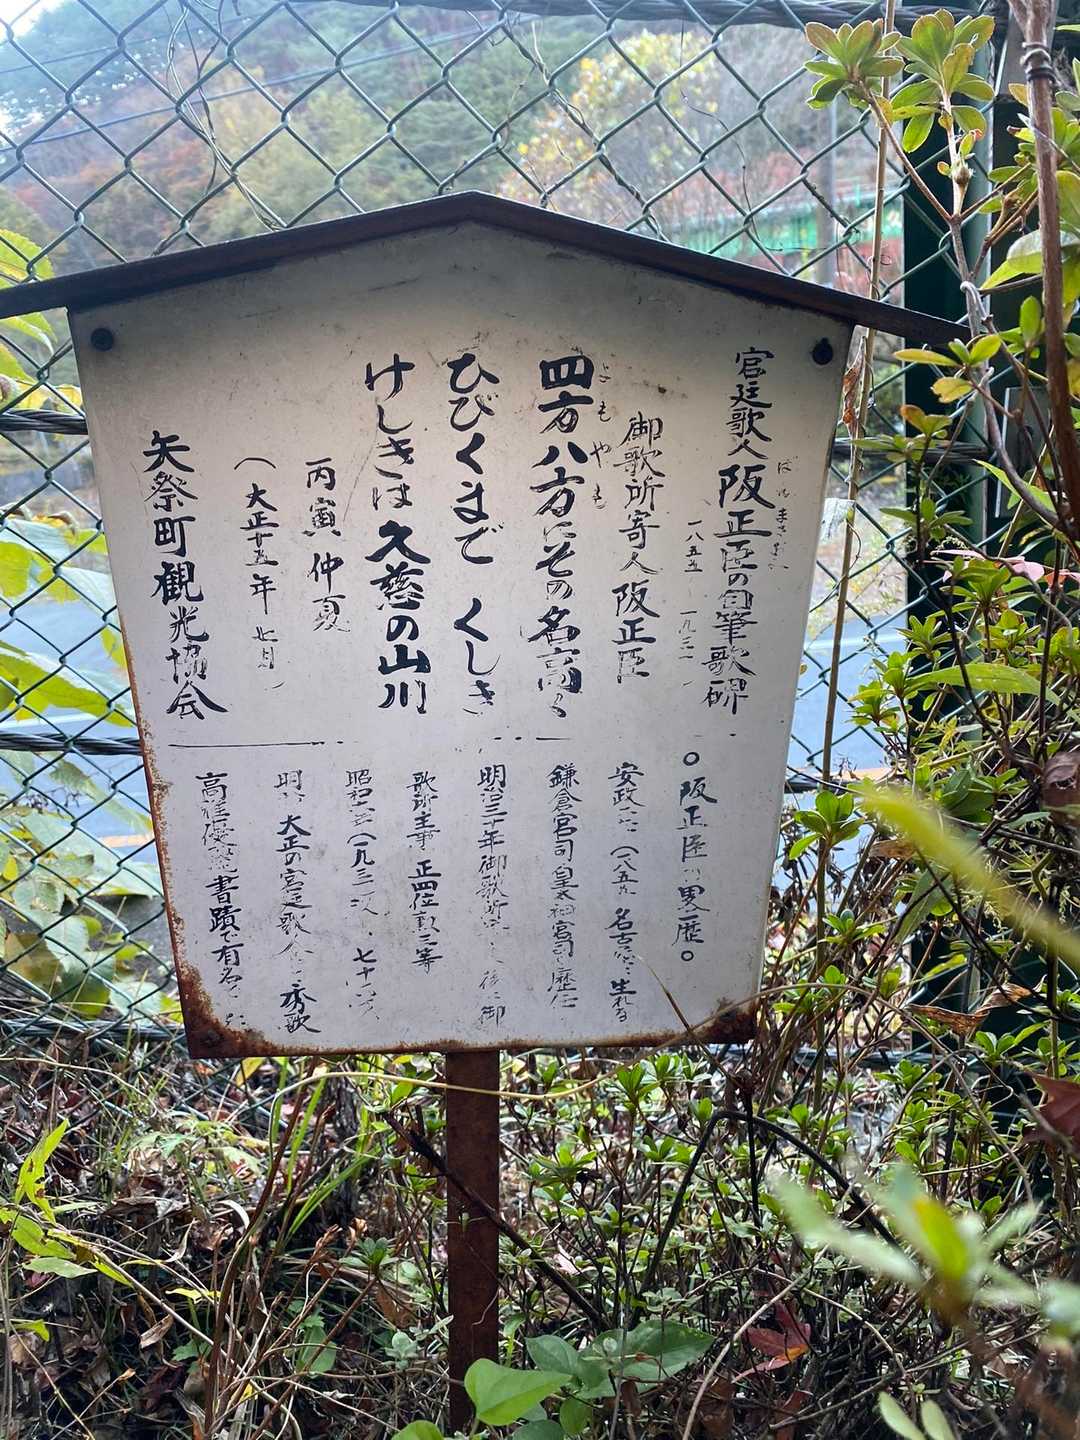 宮廷歌人阪正臣の自筆歌碑
ばんまさおみ
一八五五 一九三一
御歌所寄人阪正臣
四方八方にその名高く
よもやも
ひびくまで くしき
けしきは久慈の山川
丙寅 仲夏
(大正十五年 七月)
矢祭町観光協会
○阪正臣の略歴○
安政 (一八五五 名古屋に生れる
鎌倉宮宮司 皇太神宮 歴任
明治二十年御歌所 後に御
歌所主事 正四位勲三等
昭和六年(一九三一 七十
明治、大正の宮廷歌人 秀歌
高雅優麗 書蹟で有名